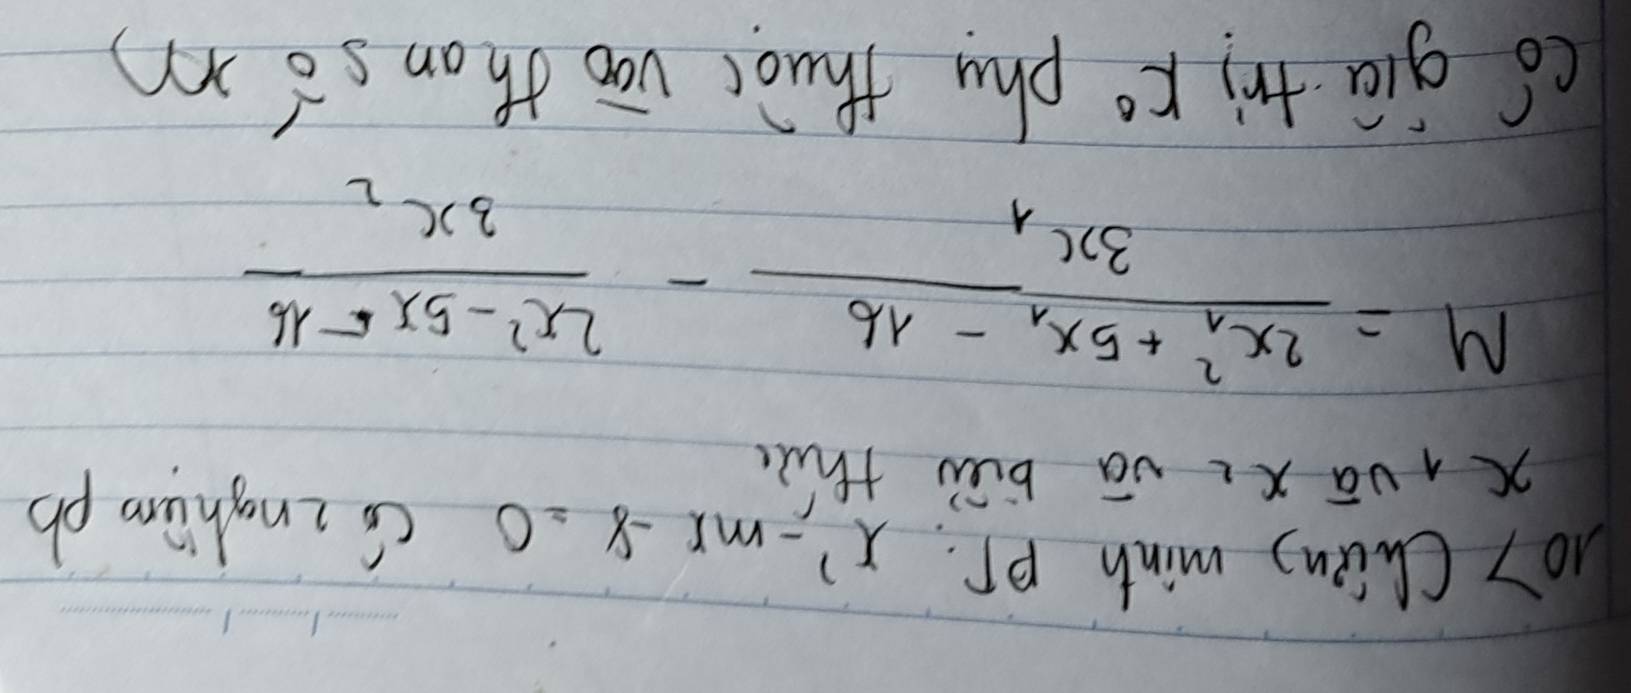 10> Chứng minh PT: x² - mx - 8 = 0 có 2 nghiệm pb
x₁ và x₂ và biểu thức
M = \frac{2x₁² + 5x₁ - 16}{3x₁} - \frac{2x² - 5x - 16}{3x₂}
Có giá trị k° phụ thuộc vào than số m